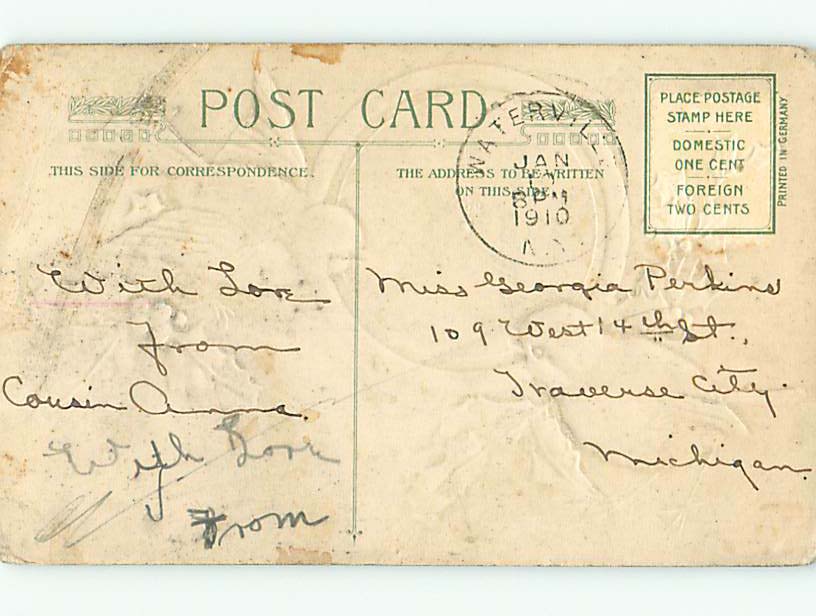 POST CARD
THIS SIDE FOR CORRESPONDENCE.
THE ADDRESS TO BE WRITTEN
ON THIS SIDE
PLACE POSTAGE
STAMP HERE
DOMESTIC
ONE CENT
FOREIGN
TWO CENTS
PRINTED IN GERMANY
JAN
5 PM
1910
With Love
from
Cousin Anna.
With Love
From
Miss Georgia Perkins
109 West 14th St.,
Traverse City.
Michigan.